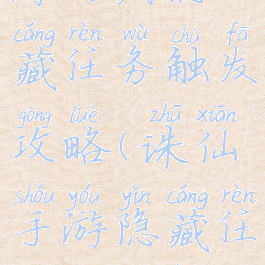 cáng rèn wù chù fā
藏任务触发
gōng lüè zhū xiān
攻略(诛仙
shǒu yóu yǐn cáng rèn
手游隐藏任